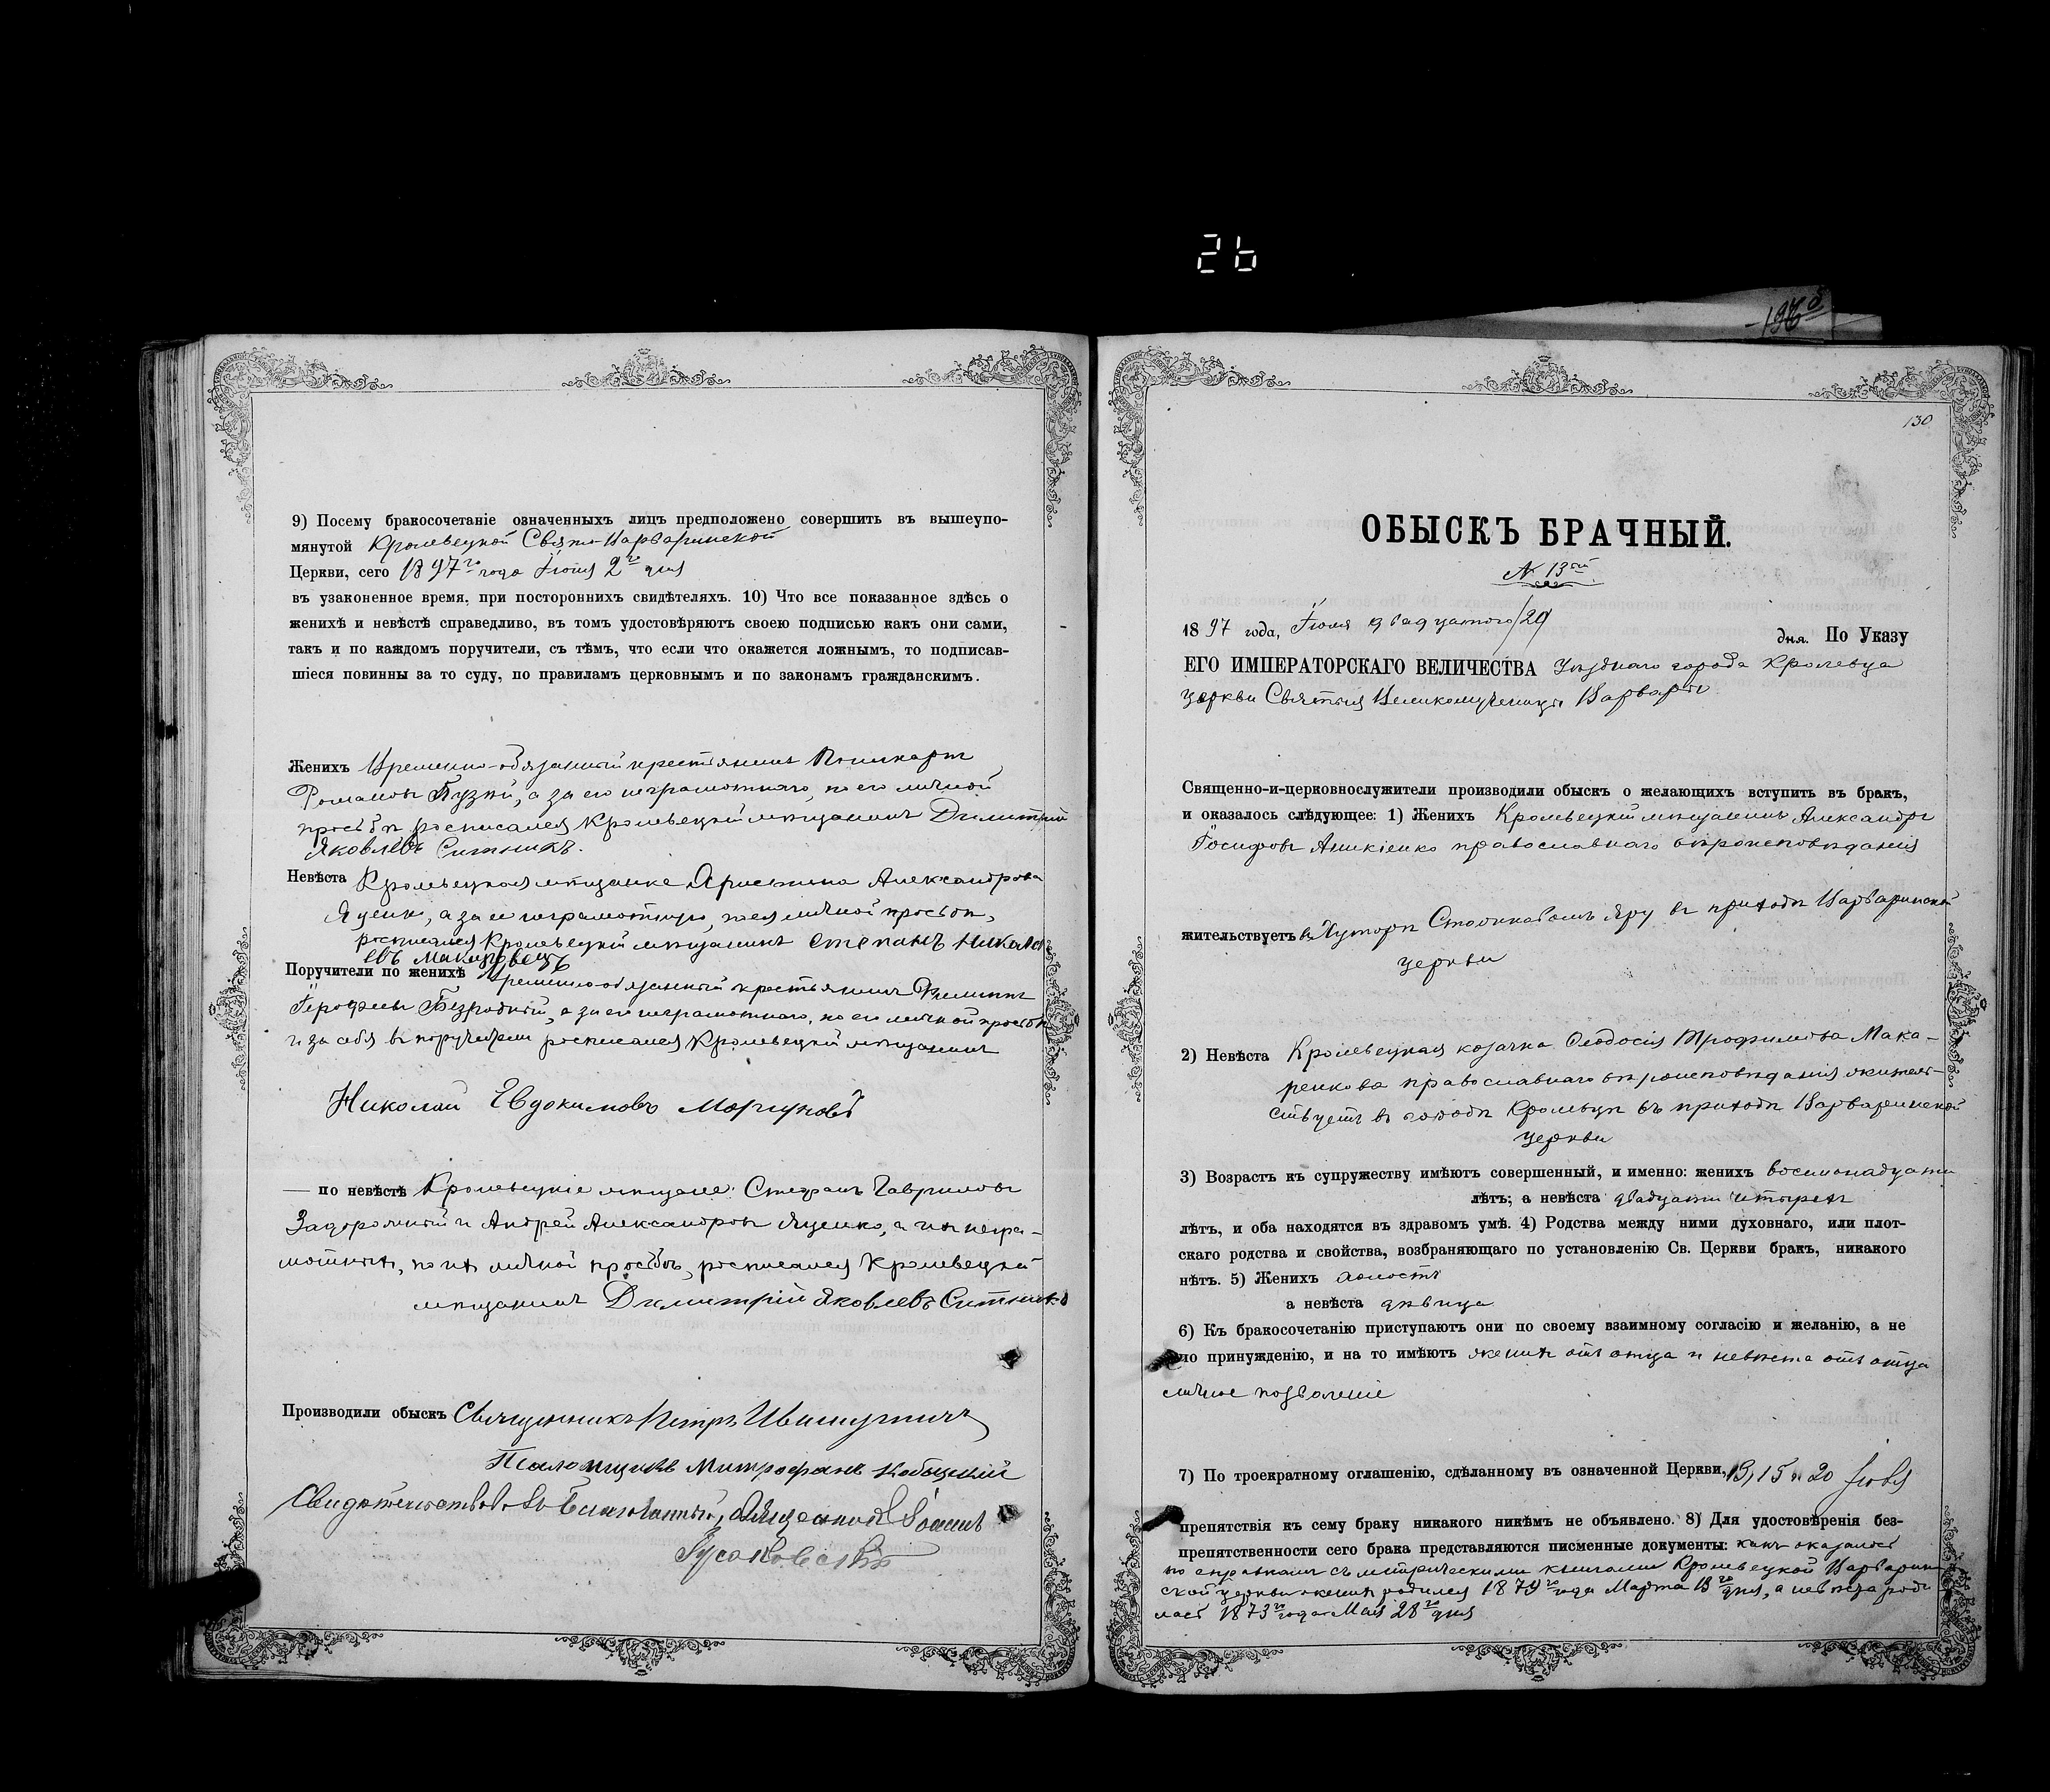 26
196
130
9) Посему бракосочетаніе означенныхъ лицъ предположено совершить въ вышеупо-
мянутой Кролевецкой Свято-Варваринской
Церкви, сего 1897го года Іюля 2го дня
въ узаконенное время, при постороннихъ свидѣтеляхъ. 10) Что все показанное здѣсь о
женихѣ и невѣстѣ справедливо, въ томъ удостовѣряютъ своею подписью какъ они сами,
такъ и по каждомъ поручители, съ тѣмъ, что если что окажется ложнымъ, то подписав-
шіеся повинны за то суду, по правиламъ церковнымъ и по законамъ гражданскимъ.
Женихъ Временно-обязанный крестьянинъ Поликарпъ
Романовъ а за его неграмотнаго, по его личной
просьбѣ росписался Кролевецкій мѣщанинъ Димитрій
Яковлевъ Ситникъ.
Невѣста Кролевецкая мѣщанка Христина Александрова
Яценко, а за ея неграмотную, по ея личной просьбѣ,
росписался Кролевецкій мѣщанинъ Степанъ Никола
евъ
Поручители по женихѣ Временно-обязанный крестьянинъ Филиппъ
Іерофеевъ Безродный, а за его неграмотнаго, по его личной просьбѣ
и за себя въ поручители росписался Кролевецкій мѣщанинъ
Николай Евдокимовъ Моргуновъ
— по невѣстѣ Кролевецкіе мѣщане: Стефанъ Гавриловъ
Задорожный и Андрей Александровъ Яценко, а за негра-
мотныхъ, по ихъ личной просьбѣ, росписался Кролевецкій
мѣщанинъ Димитрій Яковлевъ Ситникъ
Производили обыскъ Священникъ Петръ
Псаломщикъ Митрофанъ
Свидѣтельствовалъ Благочинный, Священникъ Іоаннъ
ОБЫСКЪ БРАЧНЫЙ.
№ 13ый
1897 года, Іюля двадцатого/20/ дня. По Указу
ЕГО ИМПЕРАТОРСКАГО ВЕЛИЧЕСТВА уѣзднаго города Кролевца
церкви Святыя Великомученицы Варвары
Священно-и-церковнослужители производили обыскъ о желающихъ вступить въ бракъ,
и оказалось слѣдующее: 1) Женихъ Кролевецкій мѣщанинъ Александръ
Іосифовъ Аникіенко православнаго вѣроисповѣданія
жительствуетъ въ Хуторѣ Яру въ приходѣ Варваринской
церкви
2) Невѣста Кролевецкая козачка Ѳеодосія Трофимова Мака-
ренкова православнаго вѣроисповѣданія жительс-
ствуетъ въ городѣ Кролевцѣ въ приходѣ Варваринской
церкви
3) Возрастъ къ супружеству имѣютъ совершенный, и именно: женихъ восемнадцати
лѣтъ; а невѣста двадцати четырехъ
лѣтъ, и оба находятся въ здравомъ умѣ. 4) Родства между ними духовнаго, или плот-
скаго родства и свойства, возбраняющаго по установленію Св. Церкви бракъ, никакого
нѣтъ. 5) Женихъ холостъ
а невѣста дѣвица
6) Къ бракосочетанію приступаютъ они по своему взаимному согласію и желанію, а не
по принужденію, и на то имѣютъ женихъ отъ отца и невѣста отъ отца
личное позволеніе
7) По троекратному оглашенію, сдѣланному въ означенной Церкви, 13, 15 и 20 Іюля
препятствія къ сему браку никакого никѣмъ не объявлено. 8) Для удостовѣренія без-
препятственности сего брака представляются писменные документы: какъ оказалось
по справкамъ съ метрическими книгами Кролевецкой Варварин-
ской церкви женихъ родился 1879го года Марта 13го дня, а невѣста роди
лась 1873го года Мая 28го дня